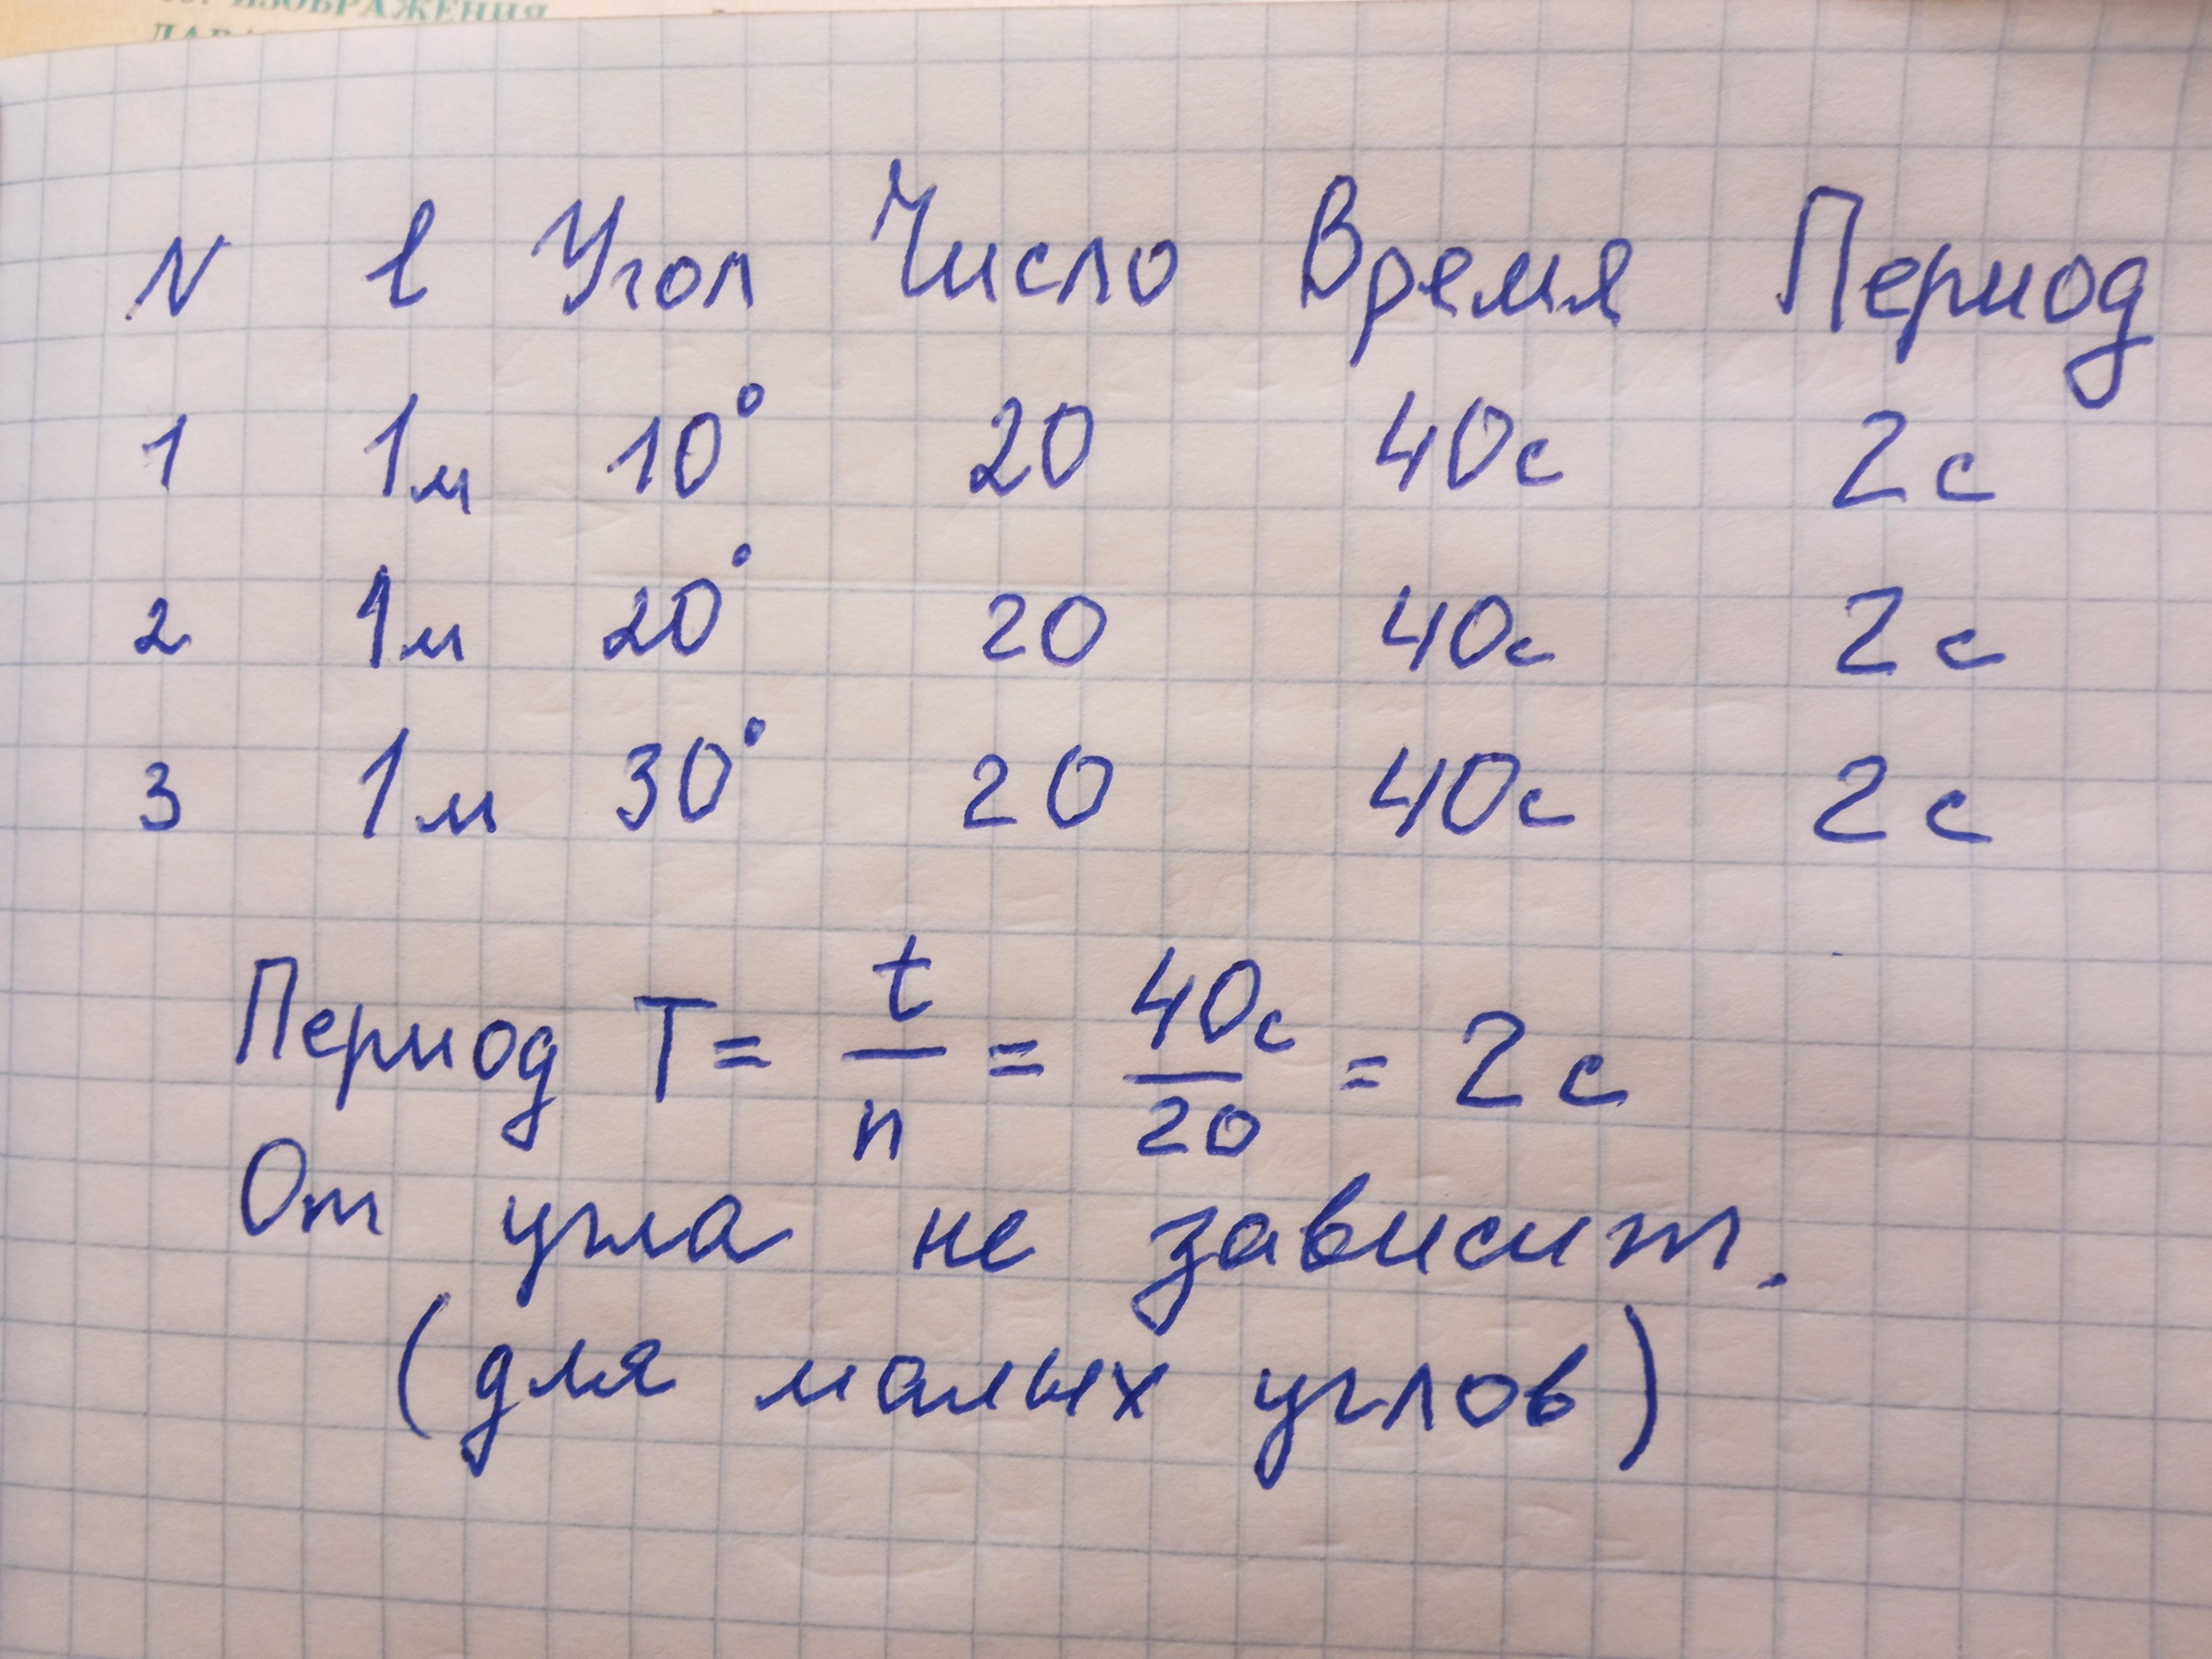 ИЗОБРАЖЕНИЯ
N l Угол Число Время Период
1 1м 10° 20 40с 2с
2 1м 20° 20 40с 2с
3 1м 30° 20 40с 2с
Период T = t/n = 40с/20 = 2с
От угла не зависит.
(для малых углов)